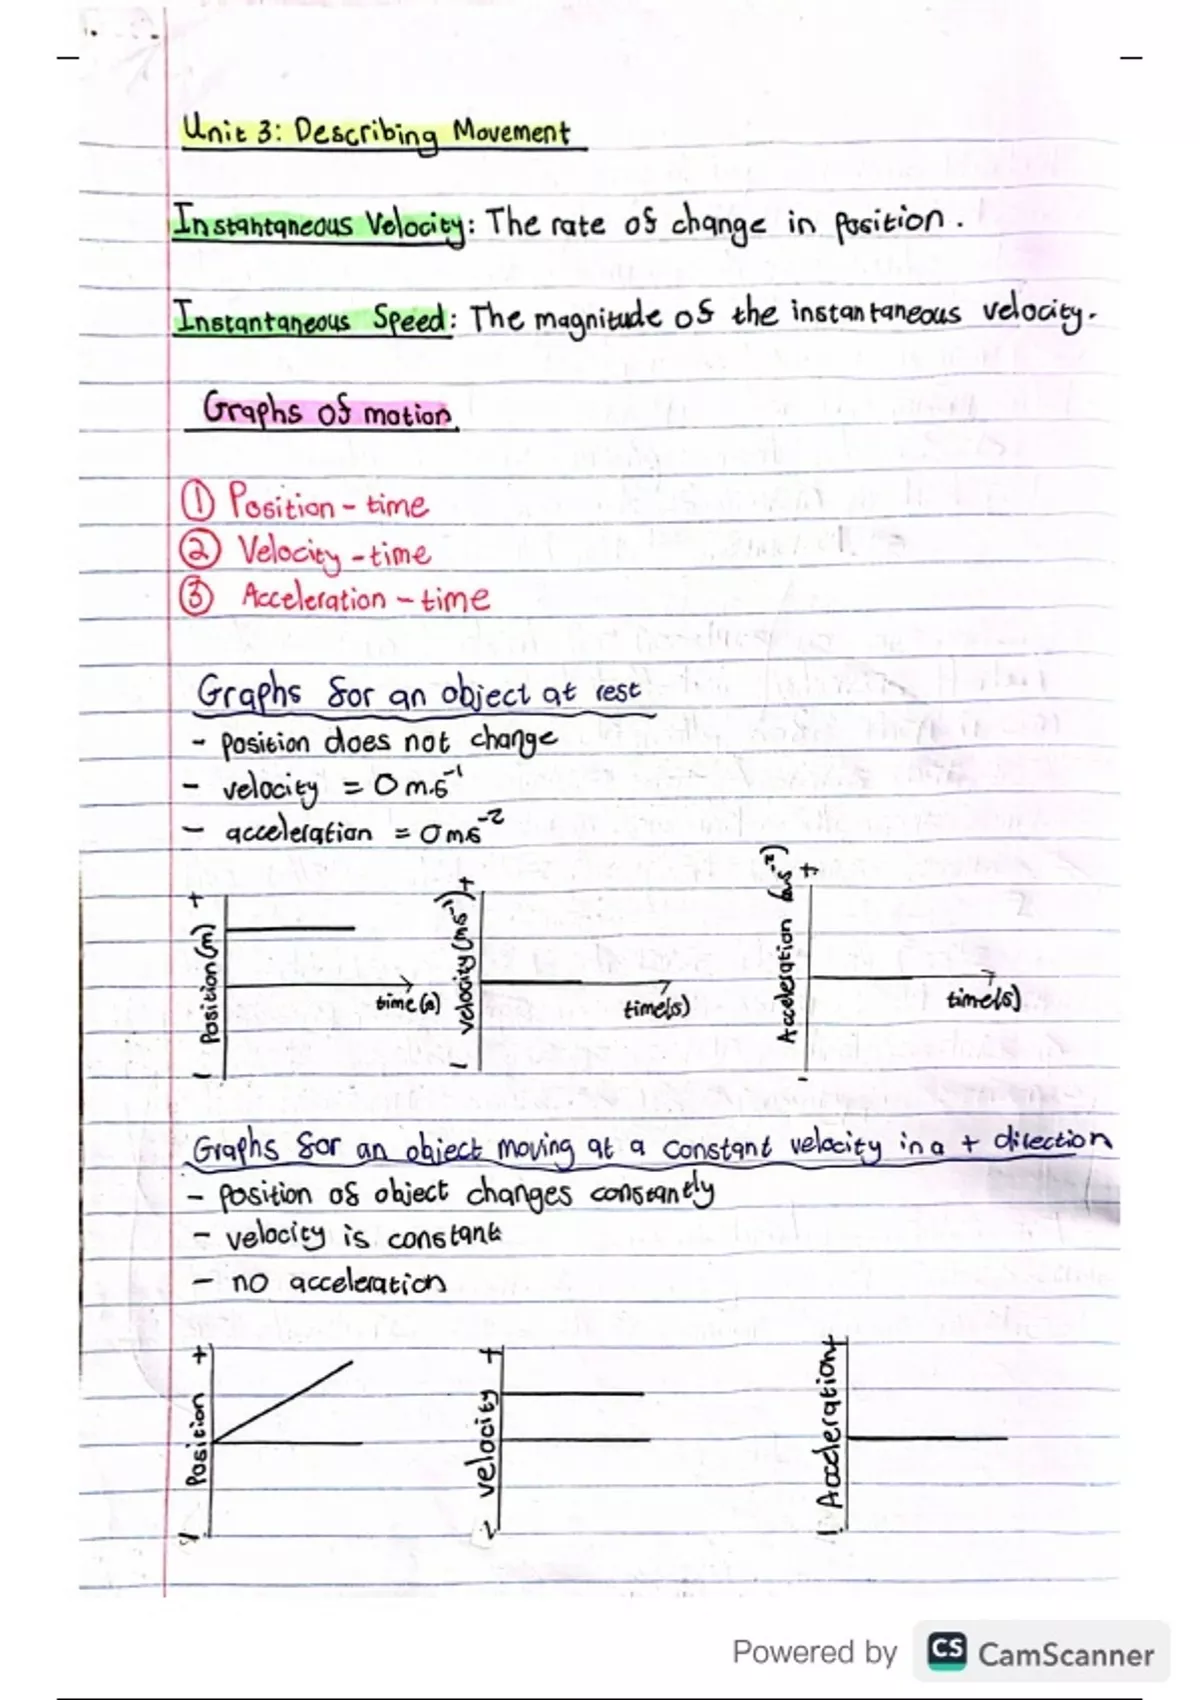 Unit 3: Describing Movement
Instantaneous Velocity: The rate of change in position.
Instantaneous Speed: The magnitude of the instantaneous velocity.
Graphs of motion
① Position - time
② Velocity - time
③ Acceleration - time
Graphs for an object at rest
- position does not change
- velocity = 0 m.s⁻¹
- acceleration = 0ms⁻²
- Position (m) +
time (s)
- velocity (ms⁻¹) +
time(s)
- Acceleration (ms⁻²) +
time(s)
Graphs for an object moving at a constant velocity in a + direction
- position of object changes constantly
- velocity is constant
- no acceleration
- Position +
- velocity +
- Acceleration +
Powered by CS CamScanner